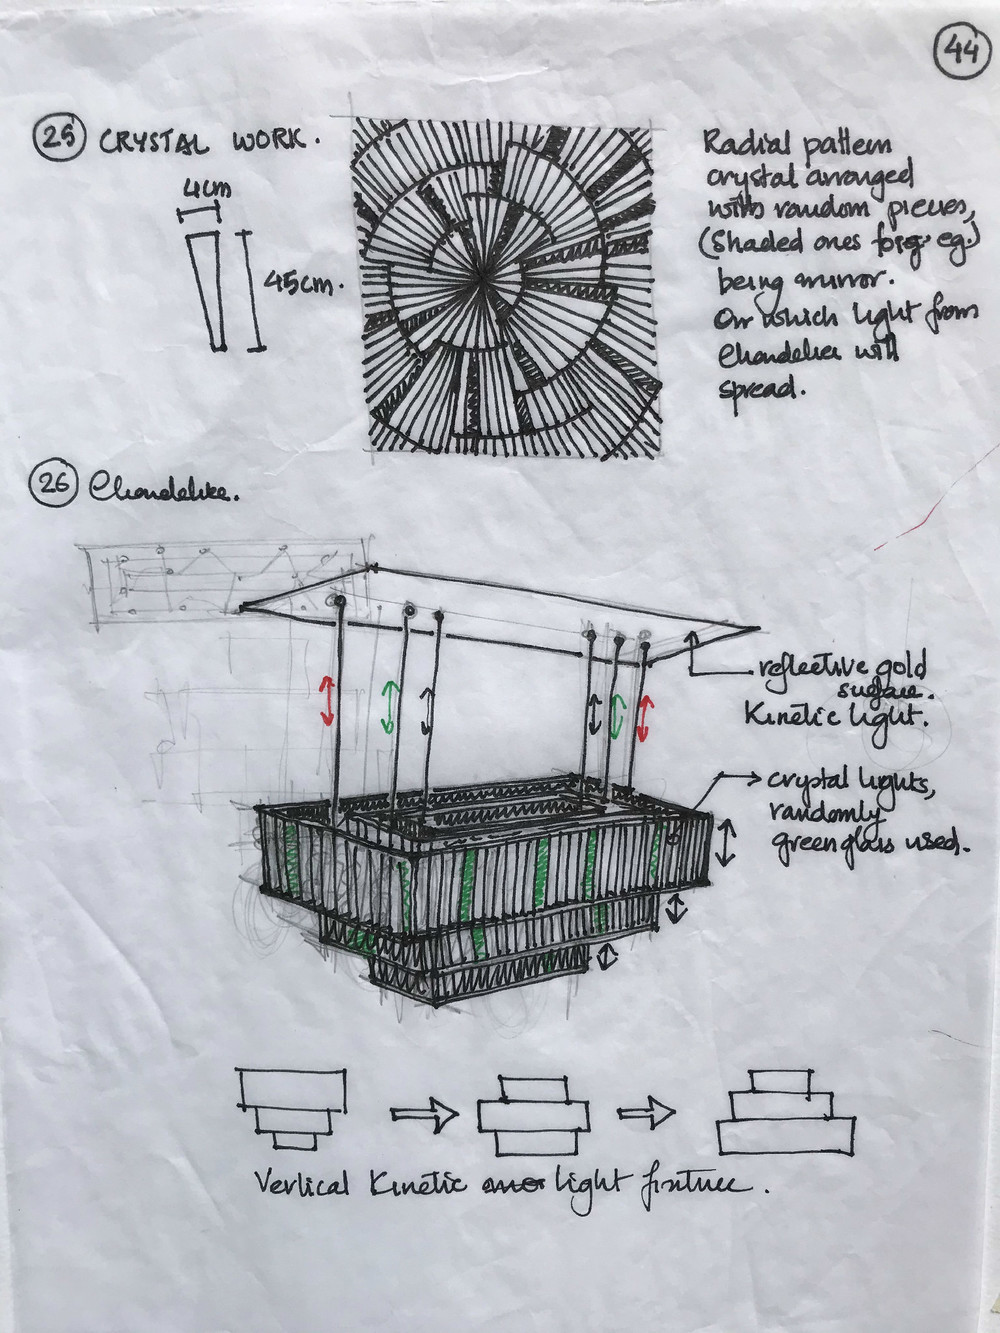 44
25 CRYSTAL WORK.
4cm
45cm.
Radial pattern
crystal arranged
with random pieces,
(Shaded ones for eg.)
being mirror.
On which light from
Chandelier will
spread.
26 Chandelier.
reflective gold
surface.
Kinetic light.
crystal lights,
randomly
green glass used.
Vertical Kinetic light fixture.